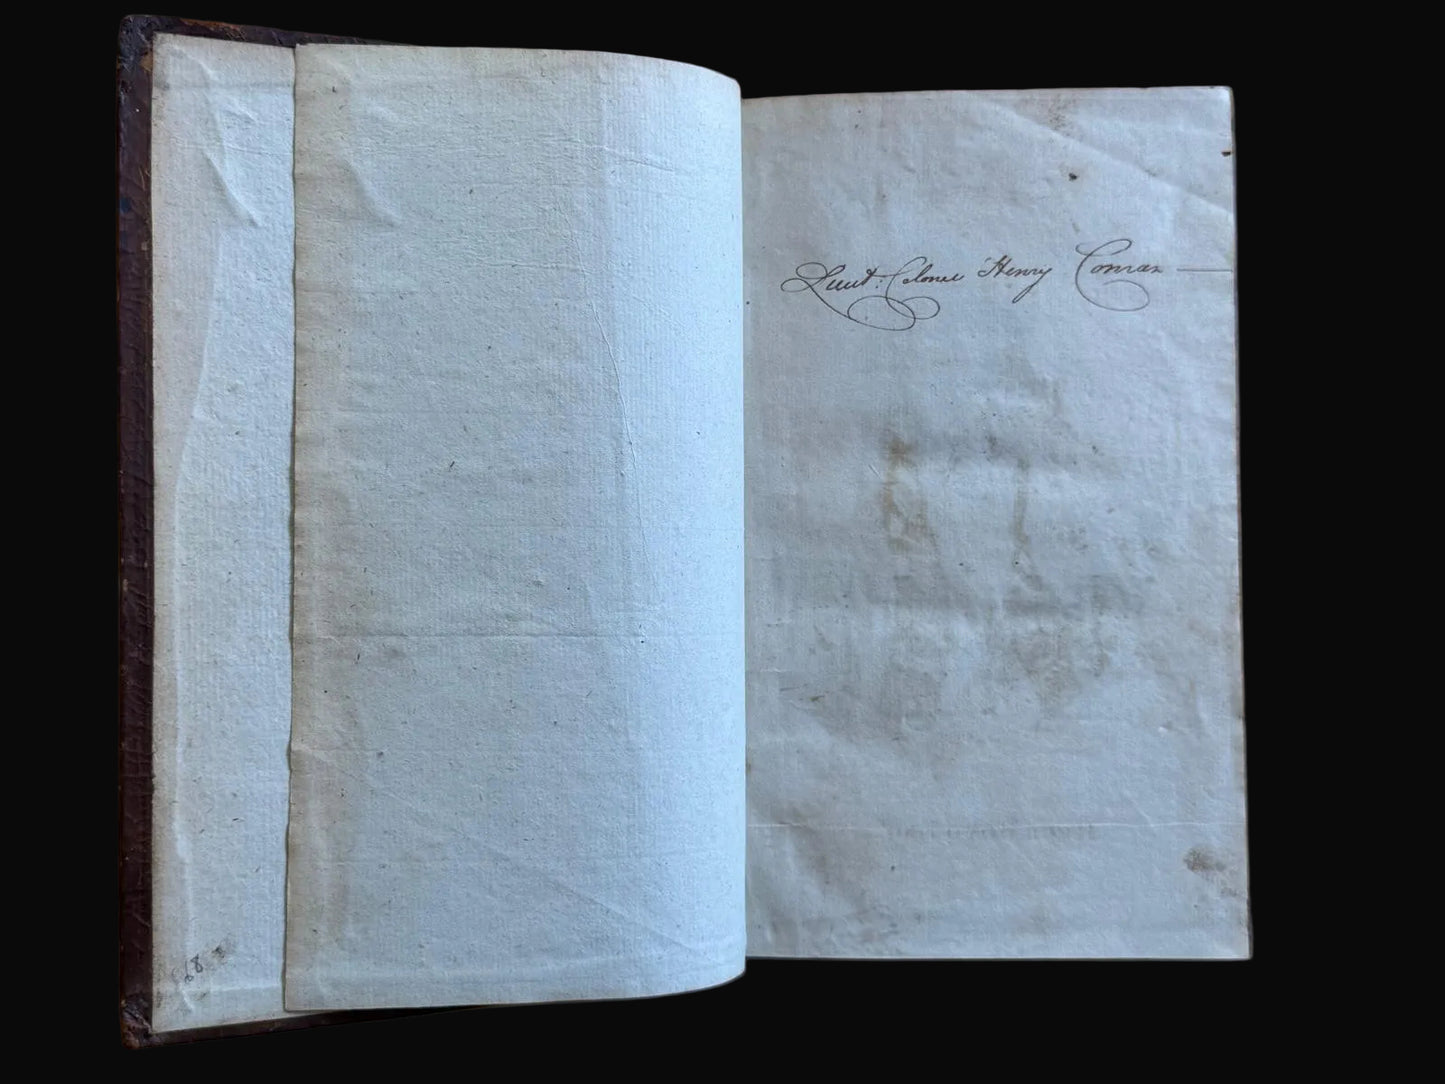 Lieut: Colonel Henry Conran